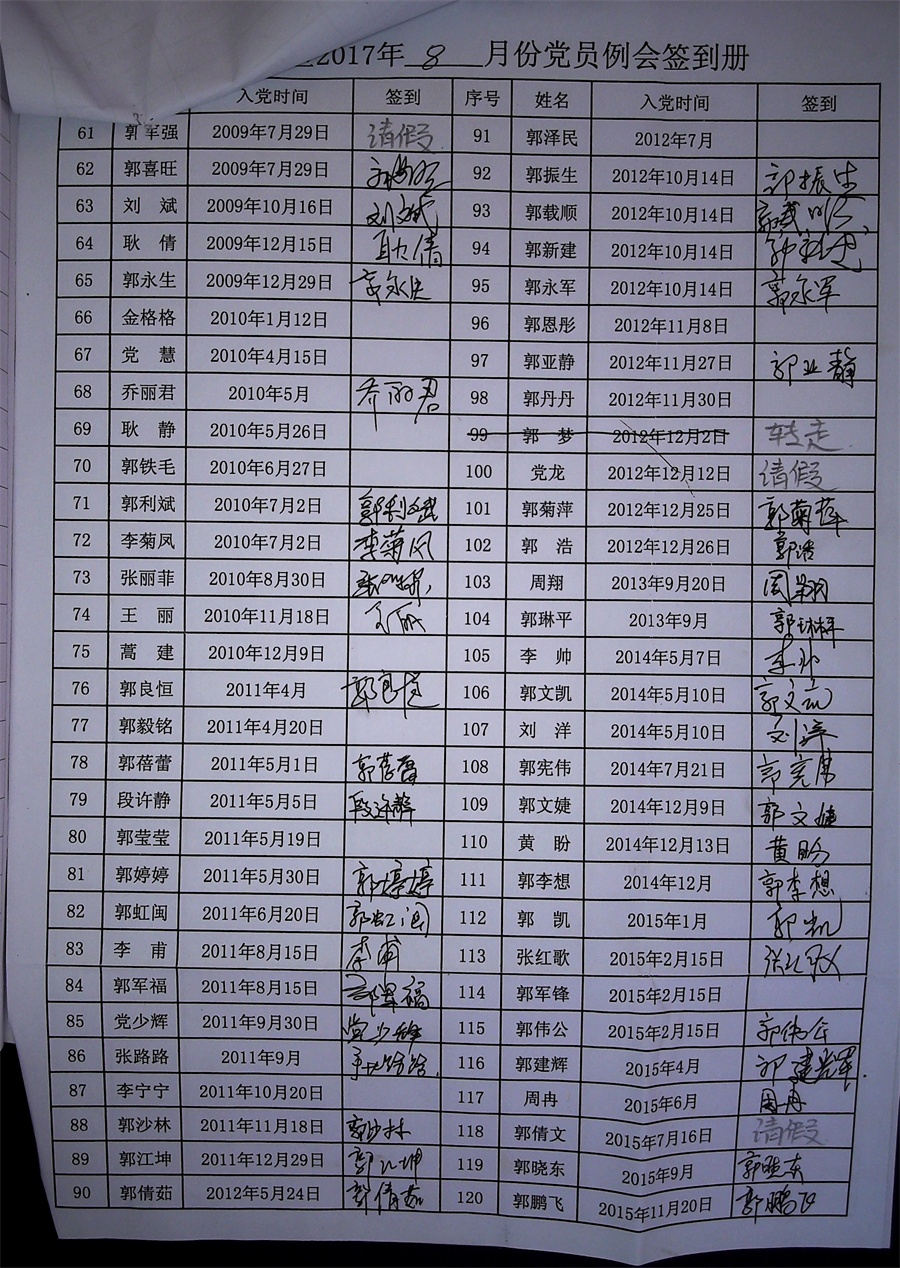 2017年 8 月份党员例会签到册
入党时间 签到 序号 姓名 入党时间 签到
61 郭军强 2009年7月29日 请假 91 郭泽民 2012年7月
62 郭喜旺 2009年7月29日 92 郭振生 2012年10月14日 郭振生
63 刘斌 2009年10月16日 刘斌 93 郭载顺 2012年10月14日 郭载顺
64 耿倩 2009年12月15日 耿倩 94 郭新建 2012年10月14日 郭新建
65 郭永生 2009年12月29日 郭永生 95 郭永军 2012年10月14日 郭永军
66 金格格 2010年1月12日 96 郭恩彤 2012年11月8日
67 党慧 2010年4月15日 97 郭亚静 2012年11月27日 郭亚静
68 乔丽君 2010年5月 乔丽君 98 郭丹丹 2012年11月30日
69 耿静 2010年5月26日 99 郭梦 2012年12月2日 转走
70 郭铁毛 2010年6月27日 100 党龙 2012年12月12日 请假
71 郭利斌 2010年7月2日 郭利斌 101 郭菊萍 2012年12月25日 郭菊萍
72 李菊凤 2010年7月2日 李菊凤 102 郭浩 2012年12月26日 郭浩
73 张丽菲 2010年8月30日 张丽菲 103 周翔 2013年9月20日 周翔
74 王丽 2010年11月18日 王丽 104 郭琳平 2013年9月 郭琳平
75 蒿建 2010年12月9日 105 李帅 2014年5月7日 李帅
76 郭良恒 2011年4月 郭良恒 106 郭文凯 2014年5月10日 郭文凯
77 郭毅铭 2011年4月20日 107 刘洋 2014年5月10日 刘洋
78 郭蓓蕾 2011年5月1日 郭蓓蕾 108 郭宪伟 2014年7月21日
79 段许静 2011年5月5日 段许静 109 郭文婕 2014年12月9日 郭文婕
80 郭莹莹 2011年5月19日 110 黄盼 2014年12月13日 黄盼
81 郭婷婷 2011年5月30日 郭婷婷 111 郭李想 2014年12月 郭李想
82 郭虹闽 2011年6月20日 郭虹闽 112 郭凯 2015年1月 郭凯
83 李甫 2011年8月15日 李甫 113 张红歌 2015年2月15日 张红歌
84 郭军福 2011年8月15日 郭军福 114 郭军锋 2015年2月15日
85 党少辉 2011年9月30日 党少辉 115 郭伟公 2015年2月15日 郭伟公
86 张路路 2011年9月 张路路 116 郭建辉 2015年4月 郭建辉
87 李宁宁 2011年10月20日 117 周冉 2015年6月 周冉
88 郭沙林 2011年11月18日 郭沙林 118 郭倩文 2015年7月16日 请假
89 郭江坤 2011年12月29日 郭江坤 119 郭晓东 2015年9月 郭晓东
90 郭倩茹 2012年5月24日 郭倩茹 120 郭鹏飞 2015年11月20日 郭鹏飞